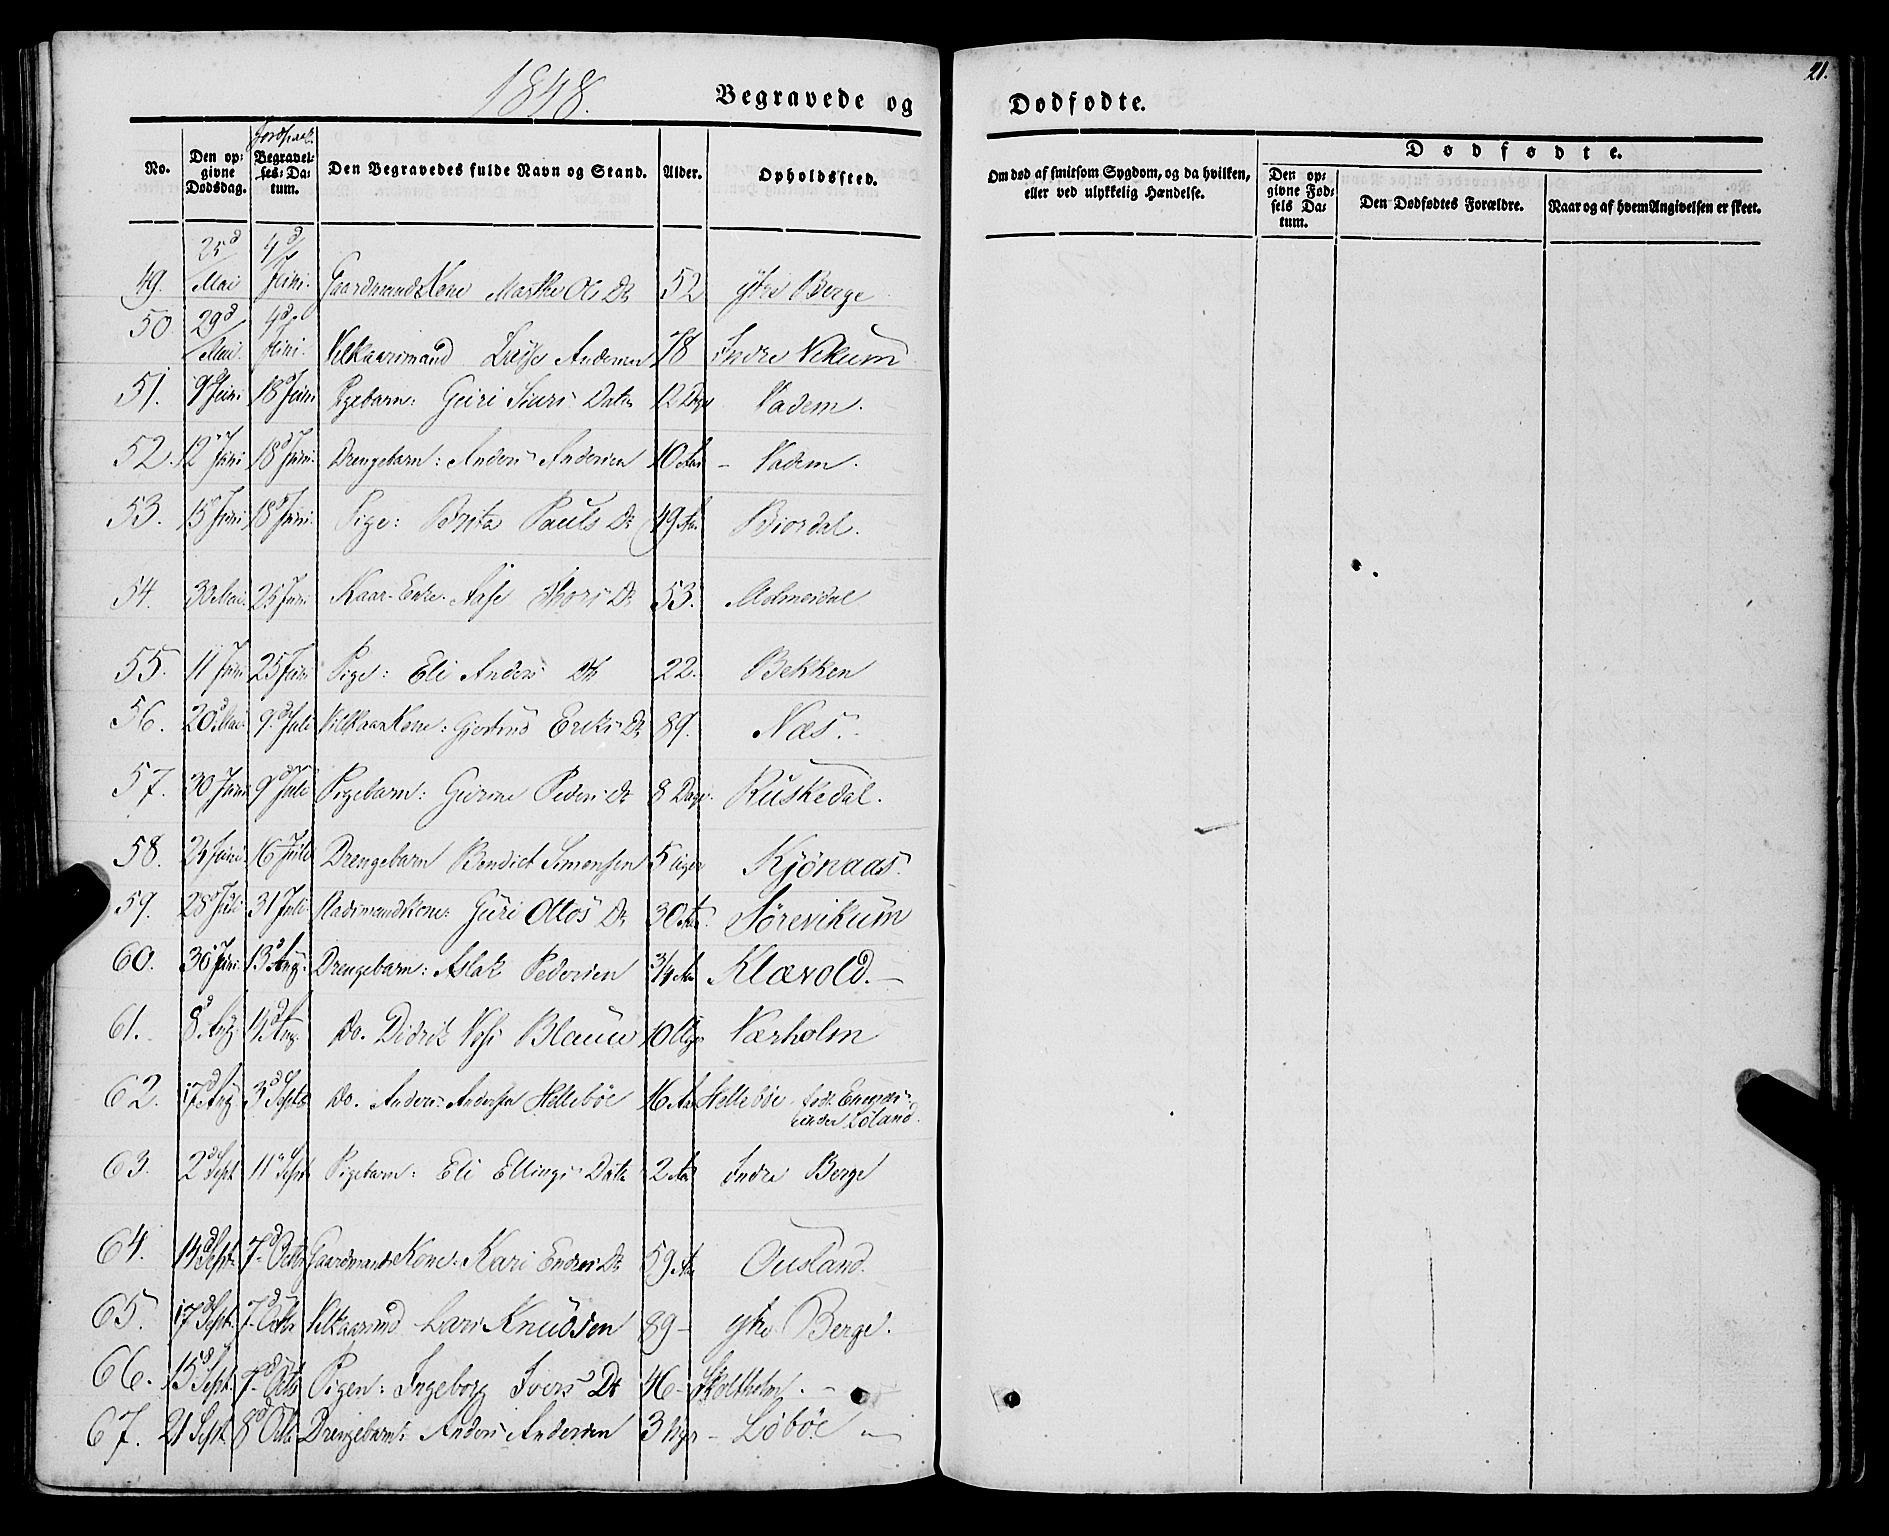 1848.
Begravede og
Dødfødte.
21.
No.
Den opgivne Dødsdag.
Begravelses-Datum.
Den Begravedes fulde Navn og Stand.
Alder.
Opholdssted.
Om død af smitsom Sygdom, og da hvilken, eller ved ulykkelig Hændelse.
Dødfødte.
Den opgivne Fødsels Datum.
Den Dødfødtes Forældre.
Naar og af hvem Angivelsen er skeet.
49. 25d Mai 4d Juni. Gaardmands Kone Marthe Ols Dr 52 ytre Berge
50 29d Mai. 4d Juni. Vilkaarsmand Lasse Andersen 78 Indre Vikum
51. 9d Juni 18d Juni Pigebarn: Guri Siurs Datr 12 Dage Vadem.
52. 12 Juni 18d Juni. Drengebarn: Anders Andersen 10 Aar – Vadem.
53. 15 Juni 18d Juni. Pige: Brita Pauls Dr 49 Aar Biordal.
54. 30 Mai. 25 Juni Kaar-Enke. Aase Thors Dr 53. Molmesdal
55. 11 Juni 25 Juni Pige: Eli Anders Dtr 22. Bekken
56. 20d Mai. 9d Juli Vilkaar Kone: Gjertrud Eriks Dr 89. Næs.
57. 30 Juni 9d Juli Pigebarn: Gurine Peders Dr 8 Dage. Kuskedal.
58. 24 Juni 16 Juli Drengebarn Bendict Simensen 5 uger Kjönaas.
59. 28 Juli 31 Juli Kone: Guri Ottos Dr 30 Aar. Sörevikum
60. 30 Juni. 13d Aug. Drengebarn: Aslak Pedersen 3/4 Aar Klævold. –
61. 8d Aug. 14d Aug. Do. Didrik Blauw 10 Uger Værholm
62. 17d Aug 3d Septb Do. Anders Andersen Hellebøe 16 Aar Hellebøe
under Løland.
63. 2d Sept 11 Sept Pigebarn: Eli Ellings Datr 2 Aar Indre Berge
64. 14d Sept. 7d Octbr Gaardmands Kone: Kari Endres Dr 59 Aar Ousland.
65. 17d Sept. 7d Octbr Vilkaarsmd Lars Knudsen 89 – ytre Berge.
66. 15d Sept. 7d Octb Pigen: Ingeborg Ivers Dt 46 – Skoltholm. –
67. 21 Sept. 8d Octb Drengebarn: Anders Andersen 3 Uger – Løbøe –